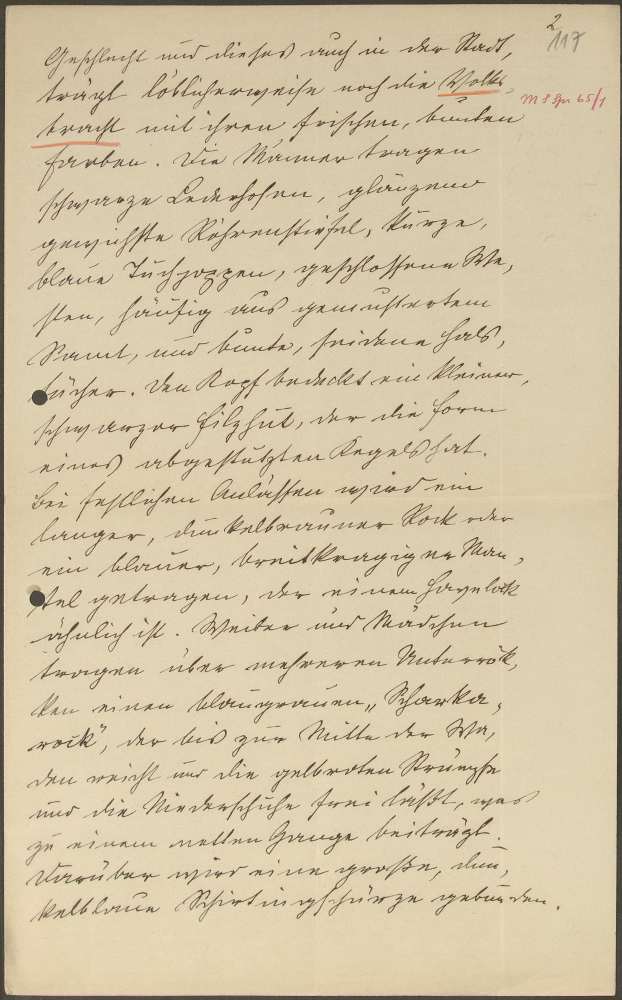 2
117
Geschlecht und dieses auch in der Stadt,
trägt löblicherweise noch die Volks,
M S Gr 65/1
tracht mit ihren frischen, bunten
Farben. Die Männer tragen
schwarze Lederhosen, glänzend
gewichste Röhrenstiefel, kurze,
blaue Tuchjoppen, geschlossene We,
sten, häufig aus gemustertem
Samt, und bunte, seidene Hals,
tücher. Den Kopf bedeckt ein kleiner,
schwarzer Filzhut, der die Form
eines abgestutzten Kegels hat.
Bei festlichen Anlässen wird ein
langer, dunkelbrauner Rock oder
ein blauer, breitkragiger Man,
tel getragen, der einem Havelock
ähnlich ist. Weiber und Mädchen
tragen über mehreren Unterrök,
ken einen blaugrauen „Scharka,
rock“, der bis zur Mitte der Wa,
den reicht und die gelbroten Strümpfe
und die Niederschuhe frei läßt, was
zu einem netten Gange beiträgt.
Darüber wird eine große, dun,
kelblaue Schirtingschürze gebunden.